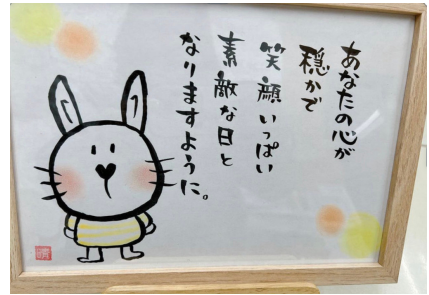 あなたの心が
穏かで
笑顔いっぱい
素敵な日と
なりますように。